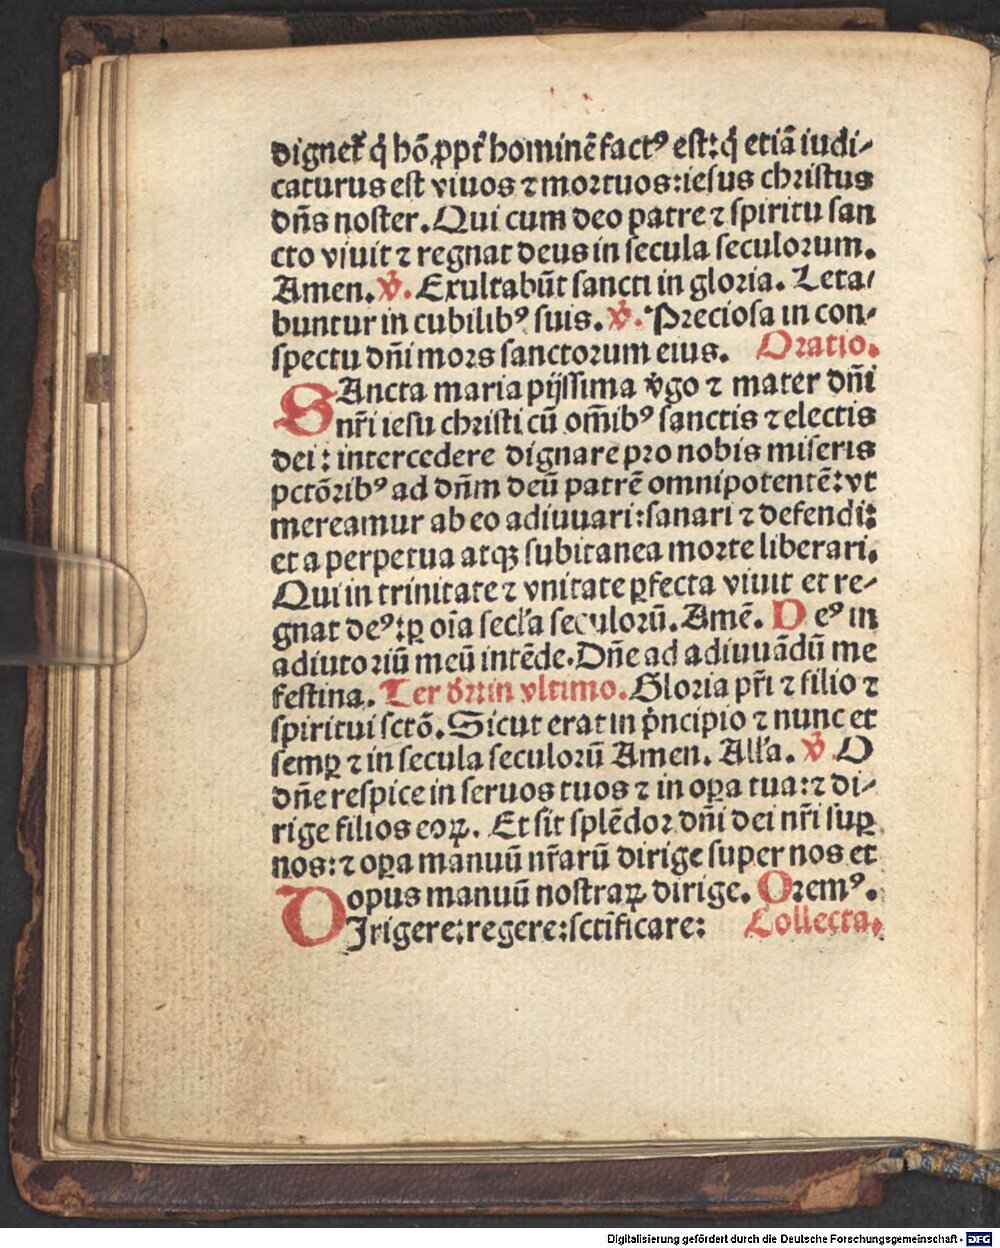 dignet᷑ q̇ hõ ꝓpt᷑ hominẽ factꝰ est: q̇ etiã iudi⸗
caturus est viuos ⁊ mortuos: iesus christus
dñs noster. Qui cum deo patre ⁊ spiritu san
cto viuit ⁊ regnat deus in secula seculorum.
Amen. ℣. Exultabũt sancti in gloria. Leta⸗
buntur in cubilibꝰ suis. ℣. Preciosa in con⸗
spectu dñi mors sanctorum eius. Oratio.
SAncta maria pijssima v̇go ⁊ mater dñi
nr̃i iesu christi cũ om̃ibꝰ sanctis ⁊ electis
dei: intercedere dignare pro nobis miseris
pctõribꝰ ad dñm deũ patrẽ omnipotentẽ: vt
mereamur ab eo adiuuari: sanari ⁊ defendi:
et a perpetua atqꝫ subitanea morte liberari.
Qui in trinitate ⁊ vnitate ꝑfecta viuit et re⸗
gnat deꝰ: ꝑ oĩa secl'a seculorũ. Amẽ. D eꝰ in
adiutoriũ meũ intẽde. Dñe ad adiuuãdũ me
festina. Ter vltimo. Gloria pr̃i ⁊ filio ⁊
spiritui sctõ. Sicut erat in pͥncipio ⁊ nunc et
semꝑ ⁊ in secula seculorũ Amen. All'a. ℣ O
dñe respice in seruos tuos ⁊ in oꝑa tua: ⁊ di⸗
rige filios eoꝝ. Et sit splẽdor dñi dei nr̃i suꝑ
nos: ⁊ oꝑa manuũ nr̃arũ dirige super nos et
opus manuũ nostraꝝ dirige. Oremꝰ.
DIrigere: regere: sctĩficare: Collecta.
Digitalisierung gefördert durch die Deutsche Forschungsgemeinschaft - DFG